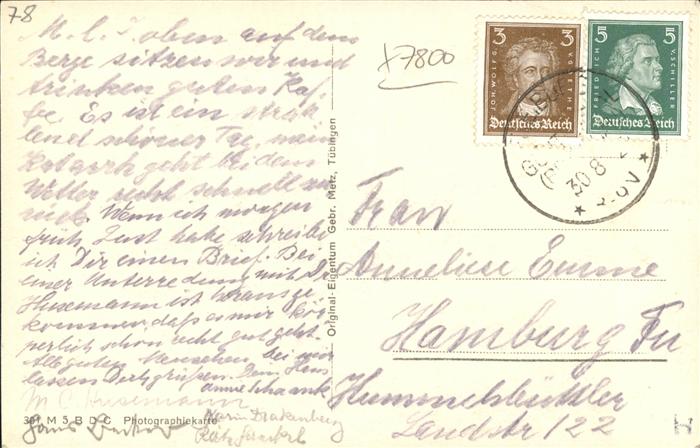 78
M. l. T. oben auf dem
Berge sitzen wir und
trinken guten Kaf-
fe. Es ist ein strah
lend schöner Tag, mein
Katarrh geht bei dem
Wetter recht schnell zu
rück. Wenn ich morgen
früh Lust habe schreibe
ich Dir einen Brief. Bei
einer Unterredung mit Dr
Husemann ist herausge
kommen, daß es mir kör
perlich schon recht gut geht.
Alle guten Menschen, die mich
lassen Dich grüßen. Dein Hans
Husemann
Karin
301 M 5 B D C Photographiekarte
Original-Eigentum Gebr. Metz, Tübingen
x7800
3 3
JOH. WOLFG. V. GOETHE
Deutsches Reich
5 5
FRIEDRICH V. SCHILLER
Deutsches Reich
30.8
Frau
Anneliese Emme
Hamburg Fu
Hummelsbüttler
Landstr 122